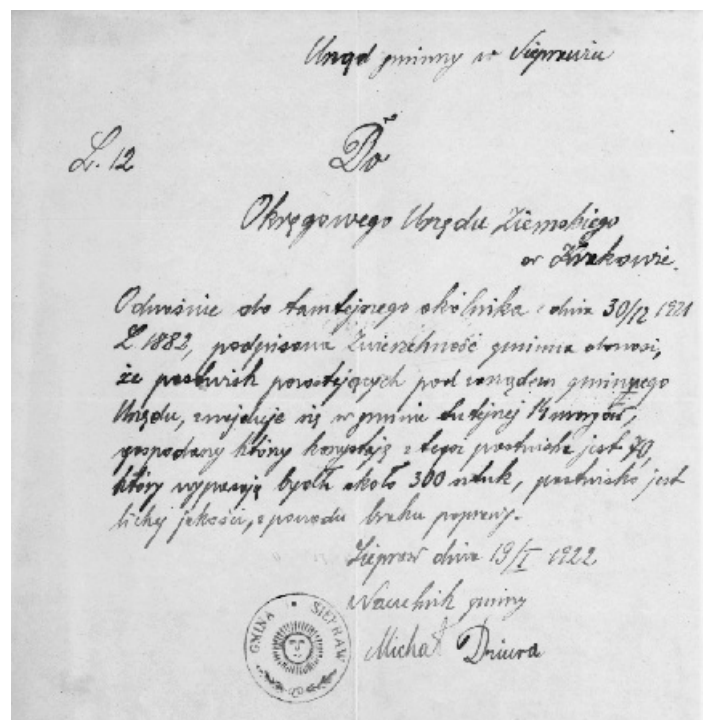 Urząd gminny w Sieprawiu
L. 12
Do
Okręgowego Urzędu Ziemskiego
w Krakowie.
Odnośnie do tamtejszego okólnika z dnia 30/12 1921
L. 1882, podpisana Zwierzchność gminna donosi,
że pastwisk pozostających pod zarządem gminnego
Urzędu, znajduje się w gminie tutejszej 14 morgów,
gospodarzy którzy korzystają z tego pastwiska jest 70,
którzy wypasają bydła około 300 sztuk, pastwisko jest
lichej jakości, z powodu braku poprawy.
Siepraw dnia 19/I 1922
Naczelnik gminy
Michał Dziura
GMINA SIEPRAW